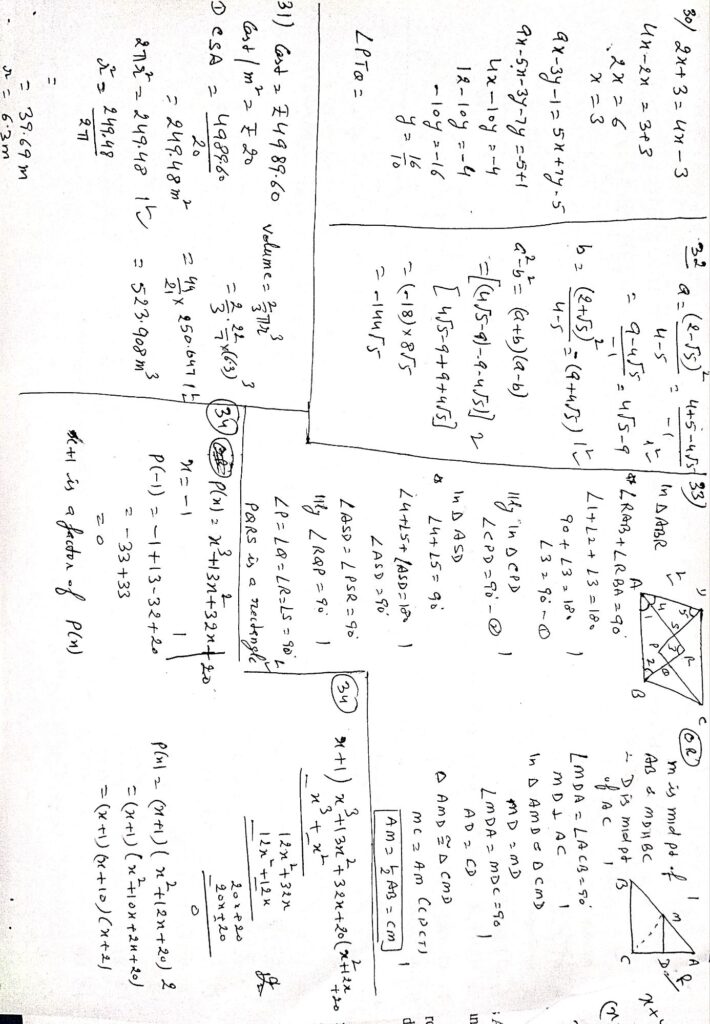 30) 2x+3 = 4x-3
4x-2x = 3+3
2x = 6
x = 3
9x-3y-1 = 5x+7y-5
9x-5x-3y-7y = -5+1
4x-10y = -4
12-10y = -4
-10y = -16
y = 16/10
∠PTQ =
31) Cost = ₹4989.60
Cost/m² = ₹20
① CSA = 4989.60/20
= 249.48 m²
2πr² = 249.48 1
r² = 249.48/2π
=
= 39.69 m
r = 6.3 m
Volume = 2/3 πr³
= 2/3 · 22/7 × (63)³
= 44/21 × 250.047 1
= 523.908 m³
32 a = (2-√5)²/4-5 = 4+5-4√5/-1 1
= 9-4√5/-1 = 4√5-9
b = (2+√5)²/4-5 = (9+4√5) 1
a²-b² = (a+b)(a-b)
= [(4√5-9)-9-4√5)] 2
[4√5-9+9+4√5]
= (-18)×8√5
= -144√5
33)
D 5 S R C
4 3
1 P Q 2
A B
In △ABR
∠RAB+∠RBA = 90
∠1+∠2+∠3 = 180
90+∠3 = 180 1
∠3 = 90 - ①
111ly in △CPD
∠CPD = 90 - ② 1
In △ASD
∠4+∠5 = 90
∠4+∠5+∠ASD = 180
∠ASD = 90
∠ASD = ∠PSR = 90
111ly ∠RQP = 90 1
∠P = ∠Q = ∠R = ∠S = 90
PQRS is a rectangle
(OR)
M is mid pt of 1
AB & MD||BC
∴ D is mid pt
of AC 1
A
M D
B C
∠MDA = ∠ACB = 90
MD ⊥ AC 1
In △AMD & △CMD
MD = MD
∠MDA = MDC = 90 1
AD = CD
△AMD ≅ △CMD
MC = AM (CPCT) 1
AM = ½AB = CM
34 P(x) = x³+13x²+32x+20
x = -1 1
P(-1) = -1+13-32+20
= -33+33
= 0
x+1 is a factor of P(x)
34 x+1) x³+13x²+32x+20 (x²+12x+20
x³+x²
12x²+32x
12x²+12x
20x+20
20x+20
0
P(x) = (x+1)(x²+12x+20) 2
= (x+1)(x²+10x+2x+20)
= (x+1)(x+10)(x+2)